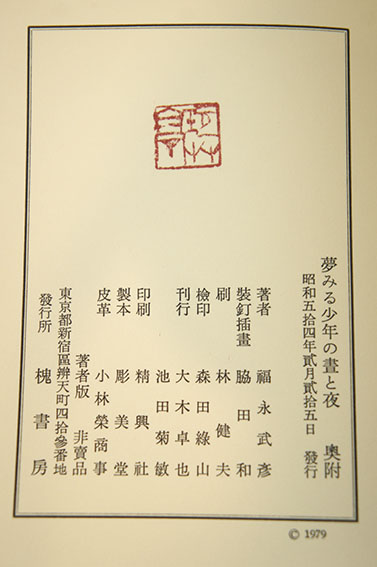 夢みる少年の晝と夜　奥附
昭和五拾四年貳月貳拾五日　發行
著者　福永武彦
裝釘插畫　脇田和
刷　林健夫
檢印　森田綠山
刊行　大木卓也
池田菊敏
印刷　精興社
製本　彫美堂
皮革　小林榮商事
著者版　非賣品
東京都新宿區辨天町四拾參番地
發行所　槐書房
© 1979